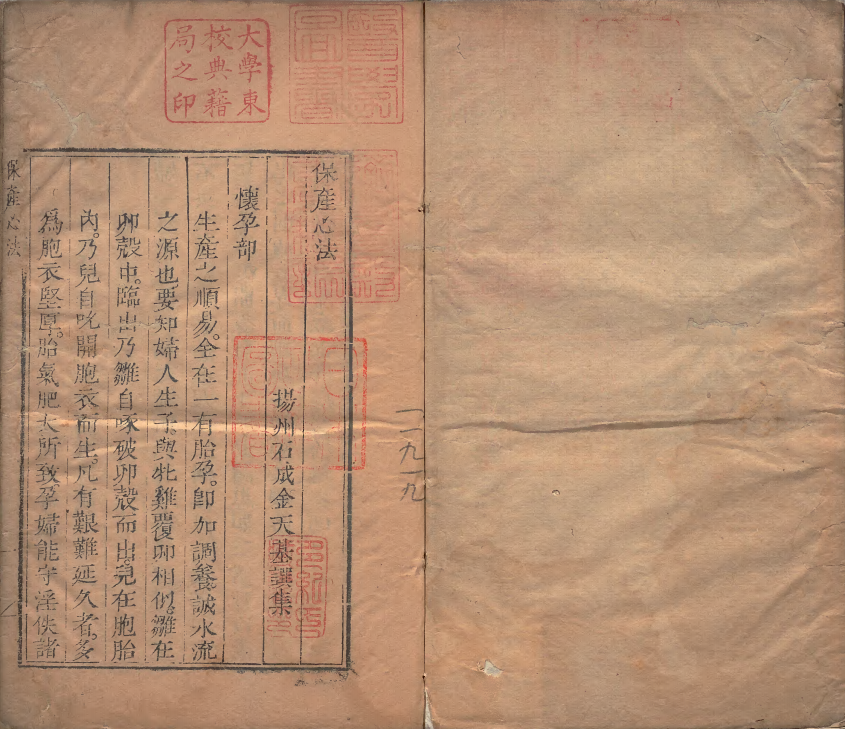 大學東
校典藉
局之印
保產心法
揚州石成金天基譔集
懷孕部
生產之順易。全在一有胎孕。卽加調養。誠水流
之源也。要知婦人生子。與牝雞覆卵相似。雛在
卵殼中。臨出乃雛自啄破卵殼而出。兒在胞胎
內。乃兒自吮開胞衣而生。凡有艱難延久者。多
爲胞衣堅厚。胎氣肥大所致。孕婦能守淫佚諸
保產心法
一一九一九